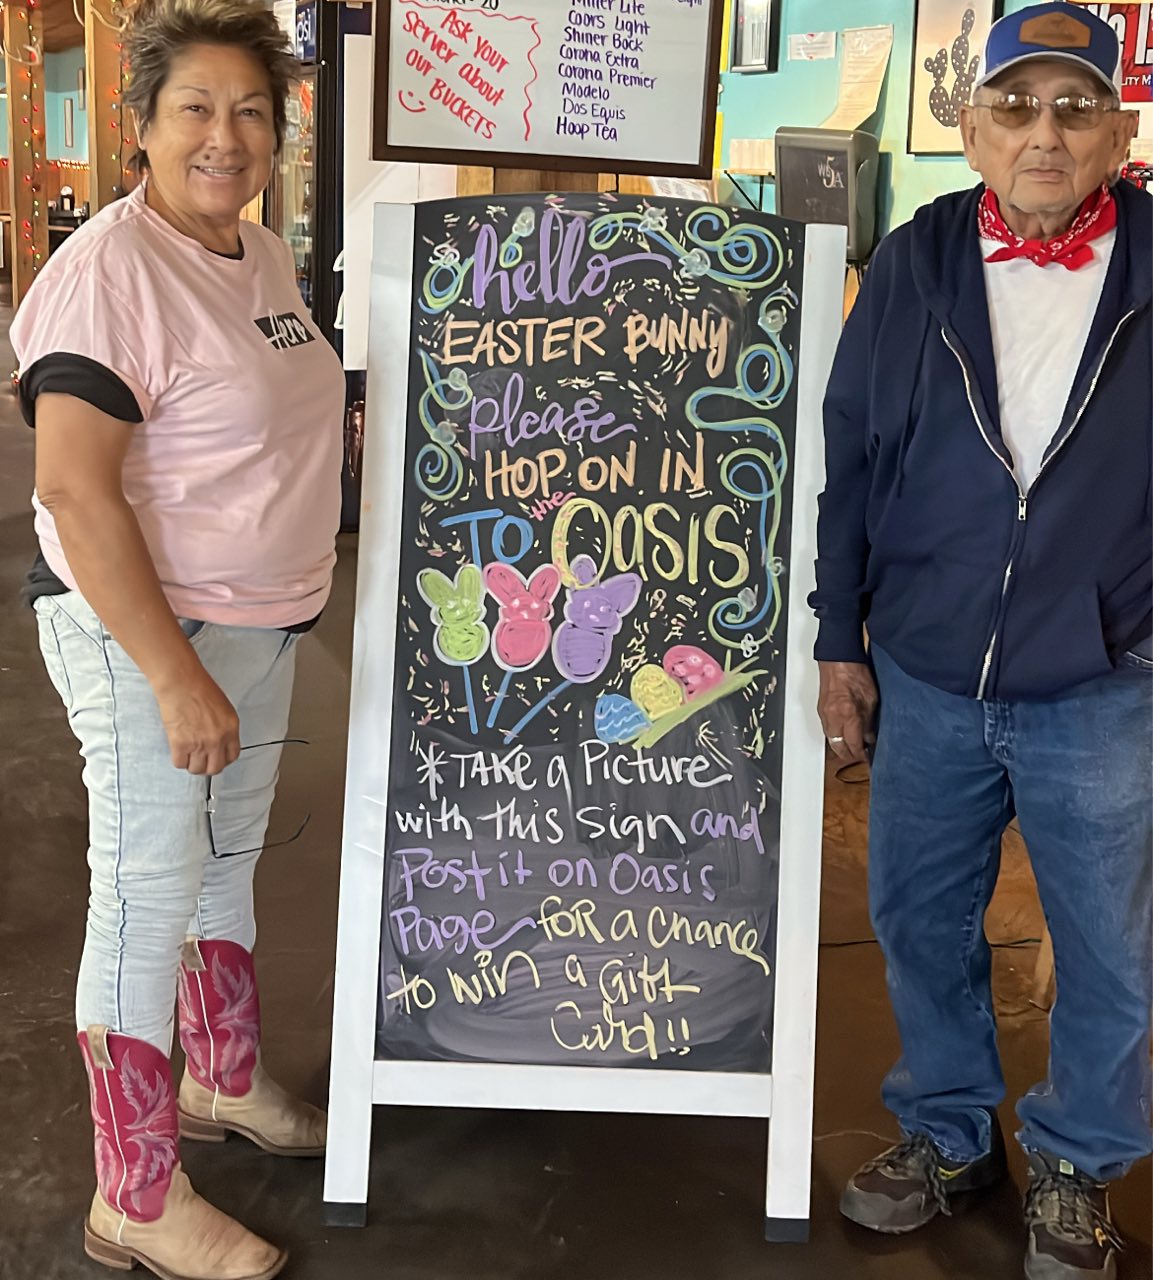 20
Ask your
server about
our BUCKETS
Miller Lite
Coors Light
Shiner Bock
Corona Extra
Corona Premier
Modelo
Dos Equis
Hoop Tea
hello
EASTER BUNNY
please
HOP ON IN
TO the OASIS
*TAKE a Picture
with this sign and
Post it on Oasis
Page for a chance
to win a Gift
Card!!
Hero
W5A